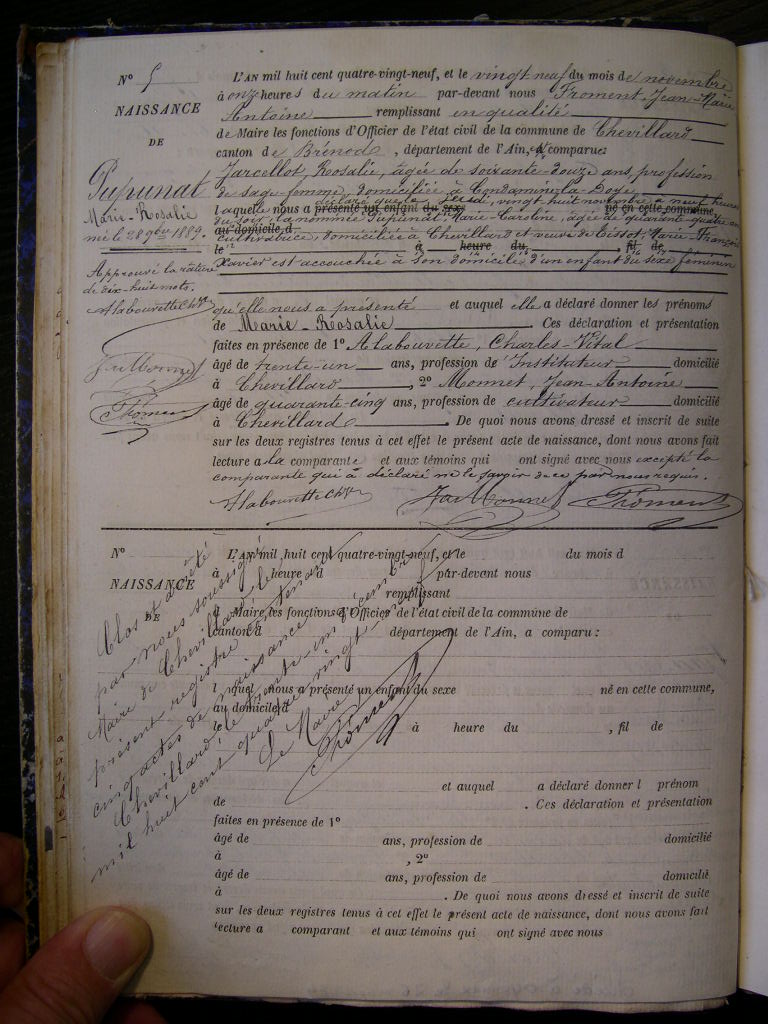 N° 5
NAISSANCE
DE
Pupunat
Marie-Rosalie
née le 28 9bre 1889.
Approuvé la rature
de dix-huit mots.
Alabouvette Ch. V.
J. A. Monnet
Froment
L'AN mil huit cent quatre-vingt-neuf, et le vingt neuf du mois de novembre
à onze heures du matin par-devant nous Froment, Jean-Marie
Antoine remplissant en qualité
de Maire les fonctions d'Officier de l'état civil de la commune de Chevillard
canton de Brénod, département de l'Ain, a comparue:
Jarcellot, Rosalie, âgée de soixante-douze ans, profession
de sage-femme, domiciliée à Condamine-la-Doye,
laquelle nous a présenté un enfant du sexe né en cette commune,
déclaré que le jeudi, vingt huit novembre, à neuf heures
au domicile d
du soir, la nommée Pupunat, Marie-Caroline, âgée de quarante-quatre ans
cultivatrice, domiciliée à Chevillard et veuve de Cissot, Marie-François
le à heure du fil de
Xavier est accouchée à son domicile d'un enfant du sexe féminin
qu'elle nous a présenté et auquel elle a déclaré donner les prénoms
de Marie-Rosalie. Ces déclaration et présentation
faites en présence de 1° Alabouvette, Charles-Vital
âgé de trente-un ans, profession d'Instituteur domicilié
à Chevillard, 2° Monnet, Jean-Antoine
âgé de quarante-cinq ans, profession de cultivateur domicilié
à Chevillard. De quoi nous avons dressé et inscrit de suite
sur les deux registres tenus à cet effet le présent acte de naissance, dont nous avons fait
lecture a la comparante et aux témoins qui ont signé avec nous excepté la
comparante qui a déclaré ne le savoir de ce par nous requis.
Alabouvette Ch. V. J. A. Monnet Froment
N°
NAISSANCE
DE
L'AN mil huit cent quatre-vingt-neuf, et le du mois d
à heure d par-devant nous
remplissant
d Maire les fonctions d'Officier de l'état civil de la commune de
canton d département de l'Ain, a comparu:
l quel nous a présenté un enfant du sexe né en cette commune,
au domicile d
le à heure du , fil de
et auquel a déclaré donner l prénom
de . Ces déclaration et présentation
faites en présence de 1°
âgé de ans, profession de domicilié
à , 2°
âgé de ans, profession de domicilié
à . De quoi nous avons dressé et inscrit de suite
sur les deux registres tenus à cet effet le présent acte de naissance, dont nous avons fait
lecture a comparant et aux témoins qui ont signé avec nous
Clos et arrêté
par nous soussigné
Maire de Chevillard, le
présent registre contenant
cinq actes de naissance
Chevillard, le trente-un décembre
mil huit cent quatre-vingt-neuf
Le Maire
Froment